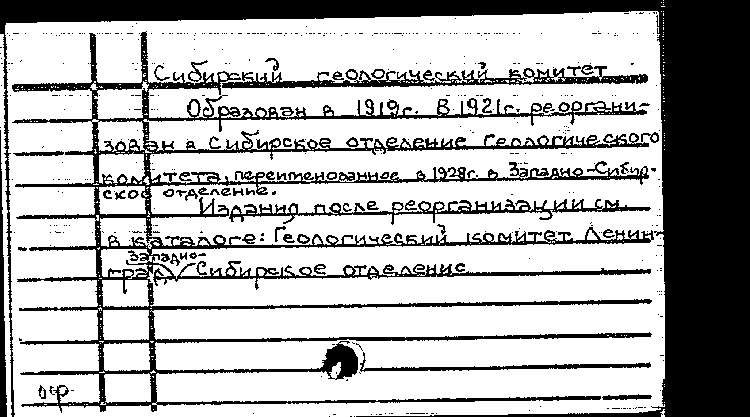 Сибирский геологический комитет
Образован в 1919г. В 1921г. реоргани-
зован в Сибирское отделение Геологического
комитета, переименованное в 1928г. в Западно-Сибир-
ское отделение.
Издания после реорганизации см.
в каталоге: Геологический комитет. Ленин-
Западно-
град, Сибирское отделение